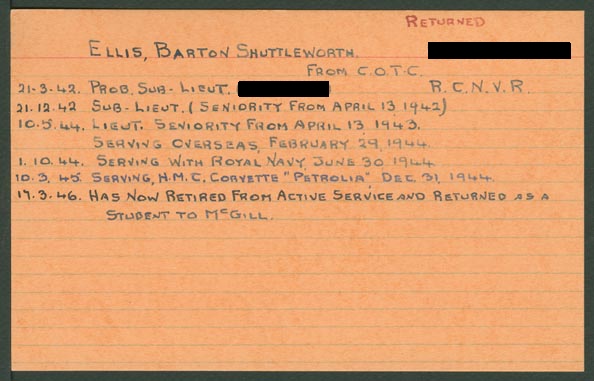 RETURNED
ELLIS, BARTON SHUTTLEWORTH.
FROM C.O.T.C.
21-3-42. PROB. SUB-LIEUT. R.C.N.V.R.
21.12.42 SUB-LIEUT. (SENIORITY FROM APRIL 13, 1942)
10.5.44. LIEUT. SENIORITY FROM APRIL 13, 1943.
SERVING OVERSEAS, FEBRUARY 29, 1944.
1.10.44. SERVING WITH ROYAL NAVY JUNE 30, 1944.
10.3.45. SERVING, H.M.C. CORVETTE "PETROLIA", DEC. 31, 1944.
17.3.46. HAS NOW RETIRED FROM ACTIVE SERVICE AND RETURNED AS A
STUDENT TO MCGILL.